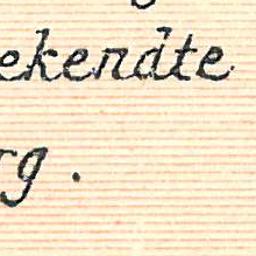 ekendte
rg.